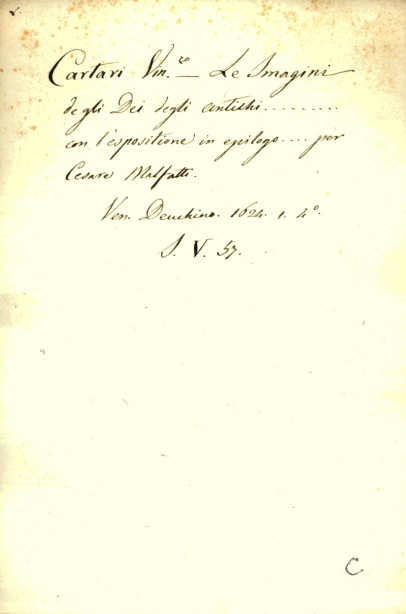 Cartari Vin.co — Le Imagini
degli Dei degli antichi .........
con l'espositione in epilogo .... per
Cesare Malfatti.
Ven. Deuchino. 1624. 1. 4°.
S. V. 57.
C